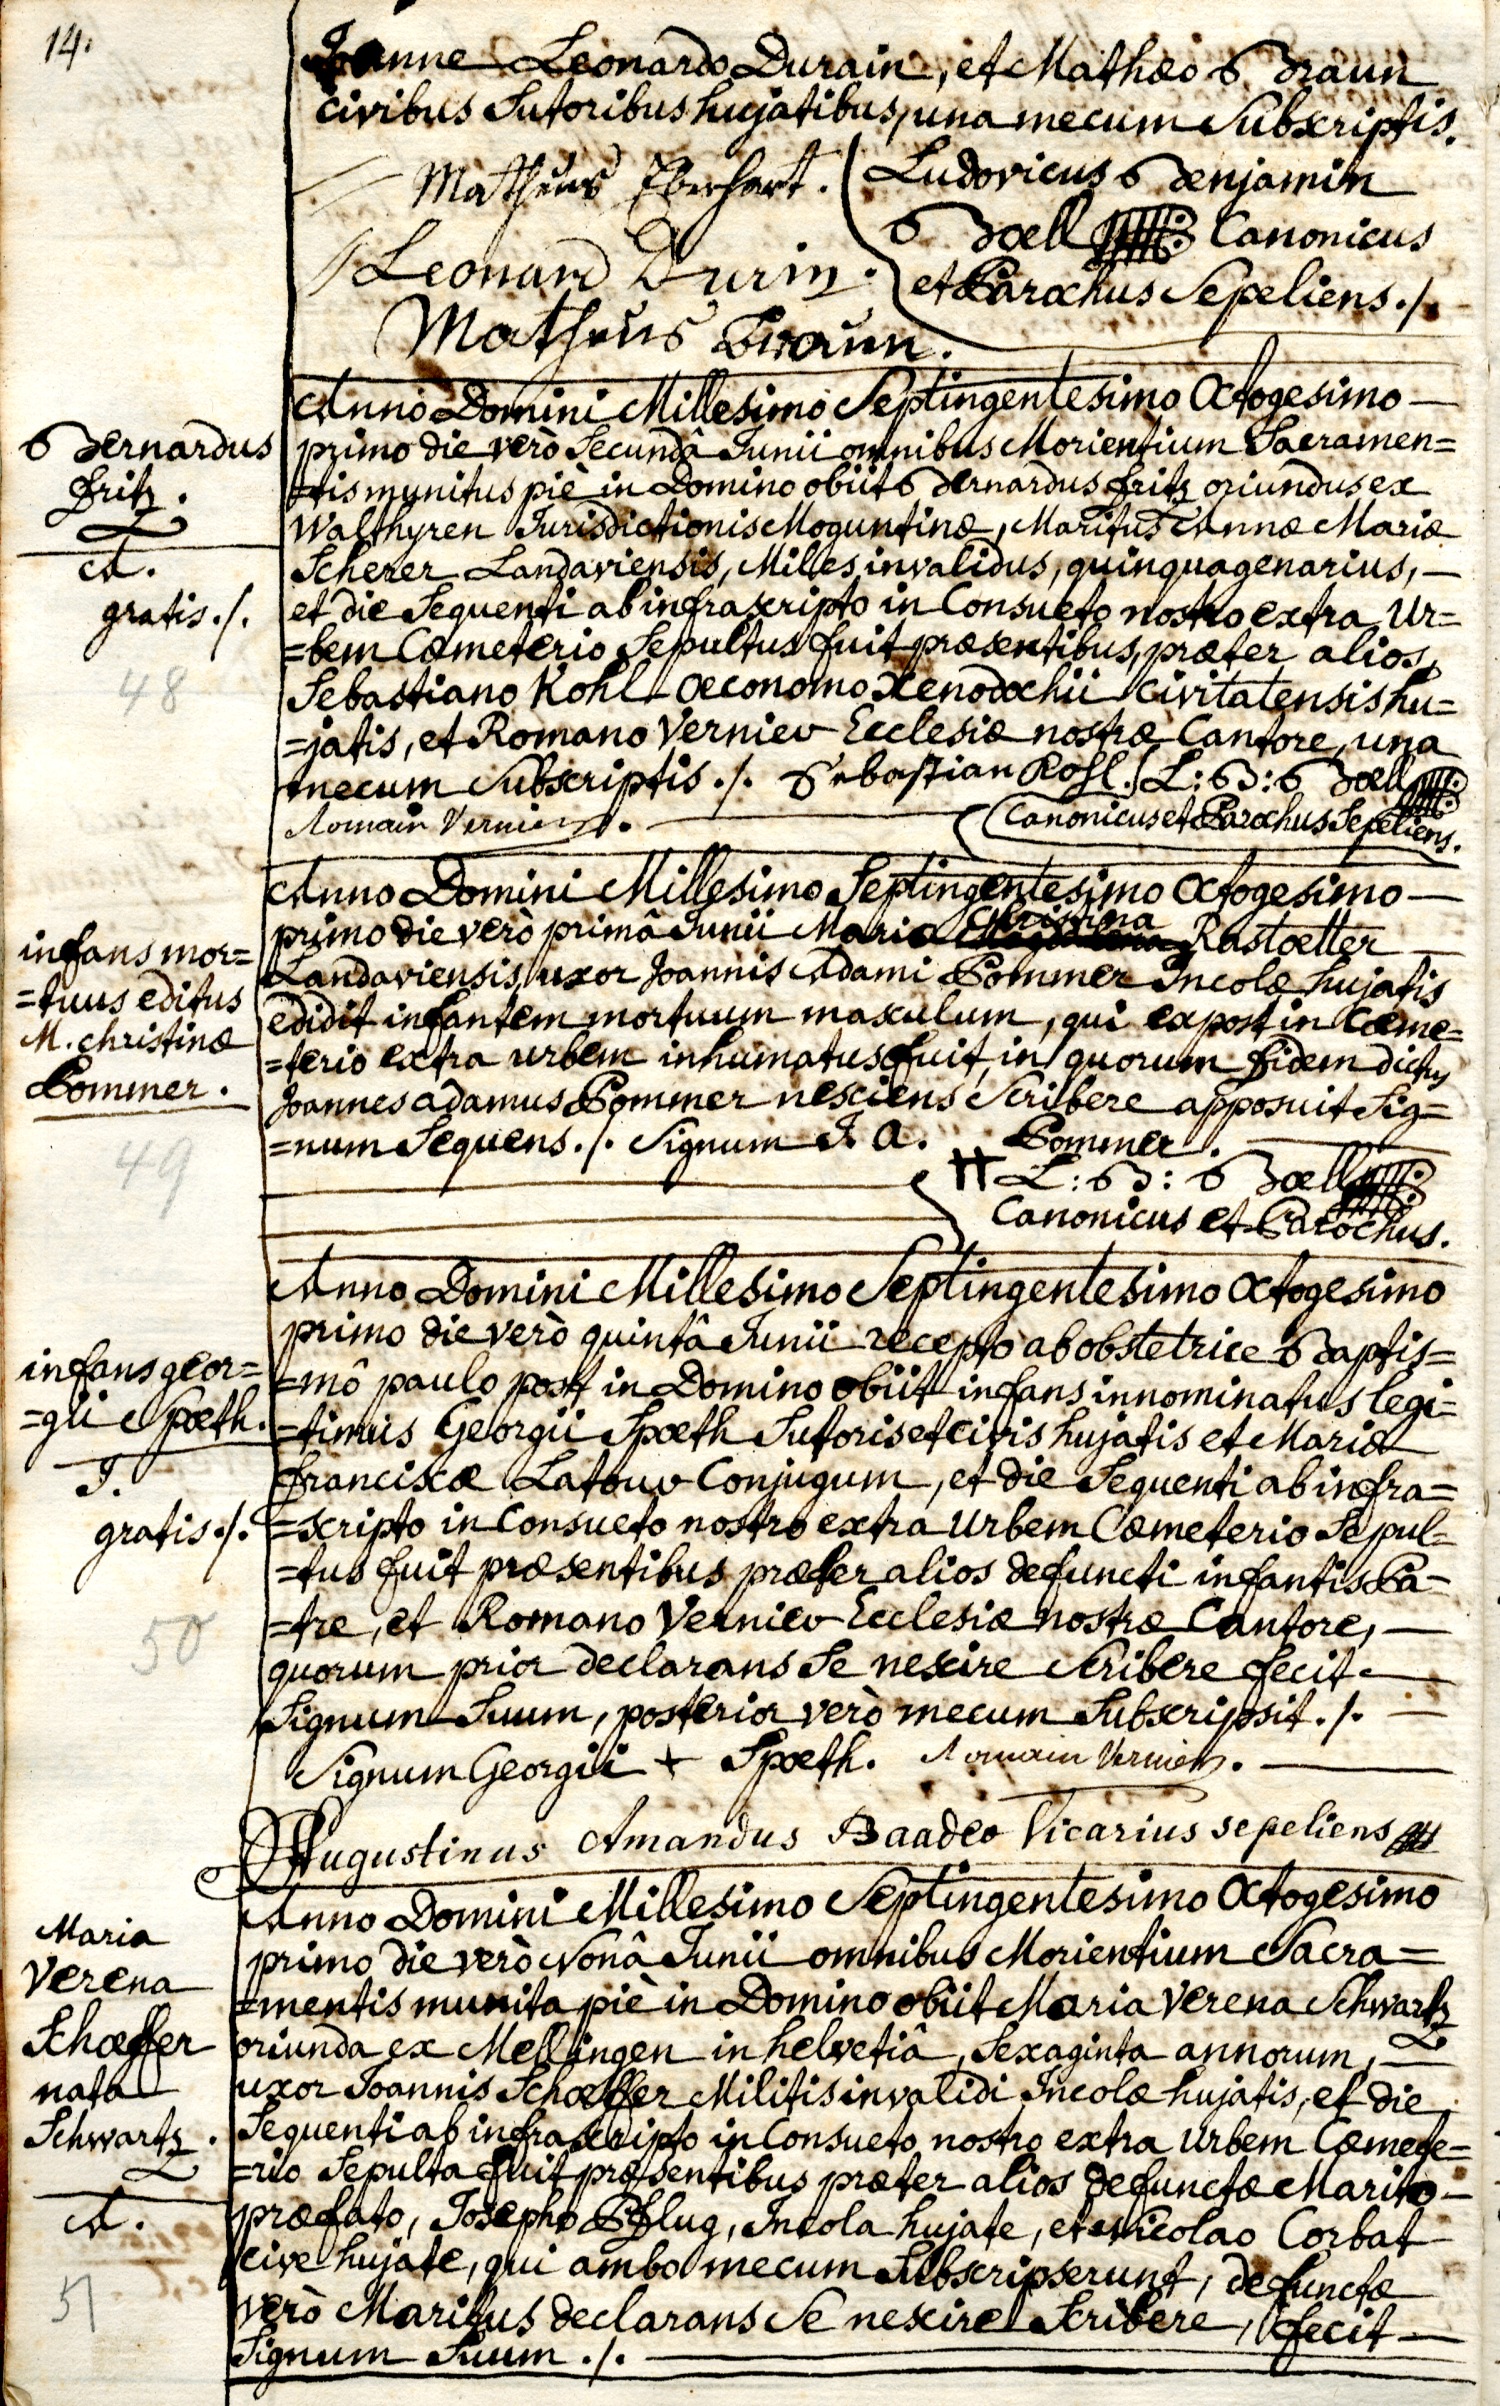 14.
Joanne Leonardo Durain, et Mathæo Braun
civibus Sutoribus hujatibus, una mecum Subscriptis.
Matheus Eberhart.
Ludovicus Benjamin
Boell Canonicus
et Parochus Sepeliens ./.
Leonard Durin.
Matheus Braun.
Bernardus
fritz.
A.
gratis ./.
48
Anno Domini Millesimo Septingentesimo Octogesimo
primo die verò Secundâ Junii omnibus Morientium Sacramen=
=tis munitus piè in Domino obiit Bernardus fritz oriundus ex
Walthyren Jurisdictionis Moguntinæ, Maritus Annæ Mariæ
Scherer Landaviensis, Milles invalidus, quinquagenarius,
et die Sequenti ab infrascripto in Consueto nostro extra Ur=
=bem Cæmeterio Sepultus fuit præsentibus, præter alios,
Sebastiano Kohl œconomo Xenodochii Civitatensis hu=
=jatis, et Romano Vernier Ecclesiæ nostræ Cantore, una
mecum Subscriptis ./. Sebastian Kohl. L: B: Boell
Romain Vernier.
Canonicus et Parochus Sepeliens.
infans mor=
=tuus editus
M. christinæ
Pommer.
49
Anno Domini Millesimo Septingentesimo Octogesimo
primo die verò primâ Junii Maria christina Rastoetter
Landaviensis, uxor Joannis Adami Pommer Incolæ hujatis
edidit infantem mortuum masculum, qui expost in Cæme=
=terio extra urbem inhumatus fuit, in quorum fidem dictus
Joannes adamus Pommer nesciens Scribere apposuit Sig=
=num Sequens ./. Signum J. A. Pommer.
L: B: Boell
Canonicus et Parochus.
infans geor=
=gii Spœth.
J.
gratis ./.
50
Anno Domini Millesimo Septingentesimo Octogesimo
primo die verò quintâ Junii recepto ab obstetrice Baptis=
=mô paulo post in Domino obiit infans innominatus legi=
=timus Georgii Spœth Sutoris et civis hujatis et Mariæ
franciscæ Latour Conjugum, et die Sequenti ab infra=
=scripto in Consueto nostro extra Urbem Cæmeterio Sepul=
=tus fuit præsentibus præter alios defuncti infantis Pa=
=tre, et Romano Vernier Ecclesiæ nostræ Cantore,
quorum prior declarans Se nescire Scribere fecit
Signum Suum, posterior verò mecum Subscripsit ./.
Signum Georgii + Spœth. Romain Vernier.
Augustinus Amandus Baader Vicarius sepeliens
Maria
Verena
Schæffer
nata
Schwartz.
A.
51
Anno Domini Millesimo Septingentesimo Octogesimo
primo die verò Nonâ Junii omnibus Morientium Sacra=
=mentis munita piè in Domino obiit Maria Verena Schwartz
oriunda ex Mellingen in helvetiâ, Sexaginta annorum,
uxor Joannis Schæffer Militis invalidi Incolæ hujatis, et die
Sequenti ab infrascripto in Consueto nostro extra Urbem Cæmete=
=rio Sepulta fuit præsentibus præter alios defunctæ Marito
præfato, Josepho Pflug, Incola hujate, et Nicolao Corbat
cive hujate, qui ambo mecum Subscripserunt, defunctæ
verò Maritus declarans Se nescire Scribere, fecit
Signum Suum ./.